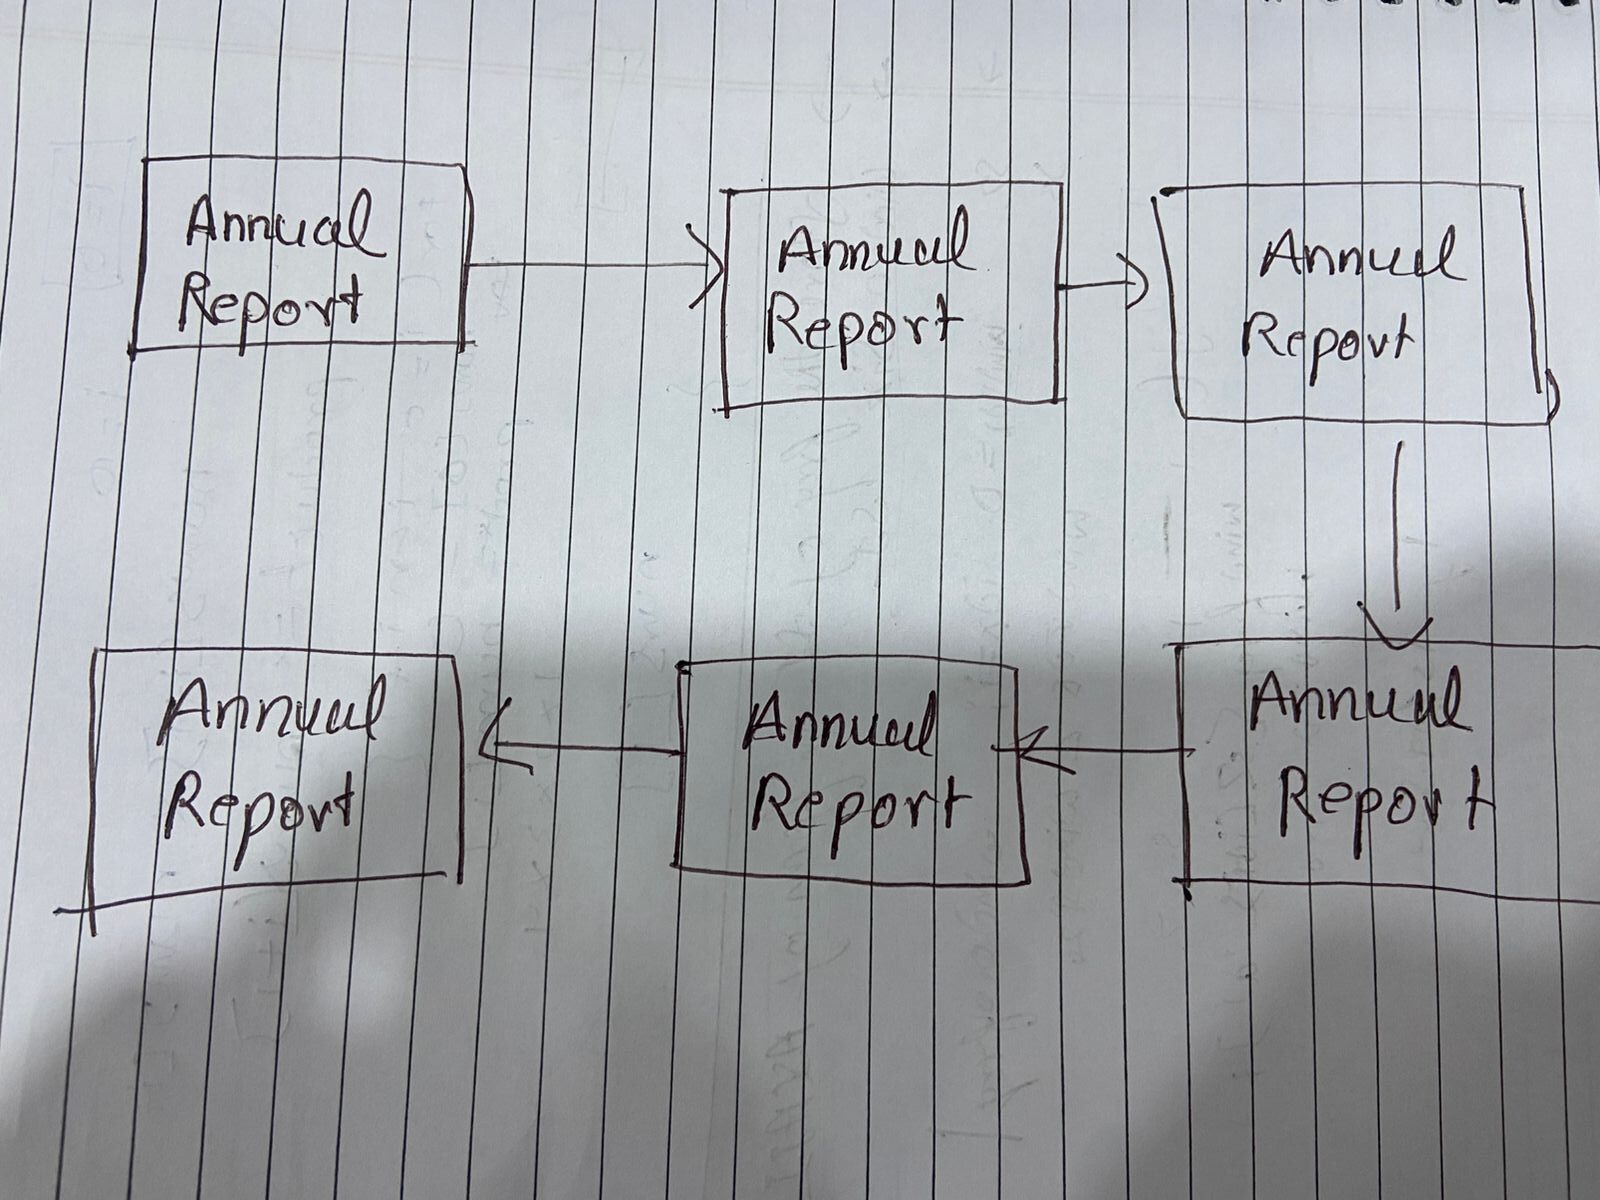 Annual
Report
Annual
Report
Annual
Report
Annual
Report
Annual
Report
Annual
Report